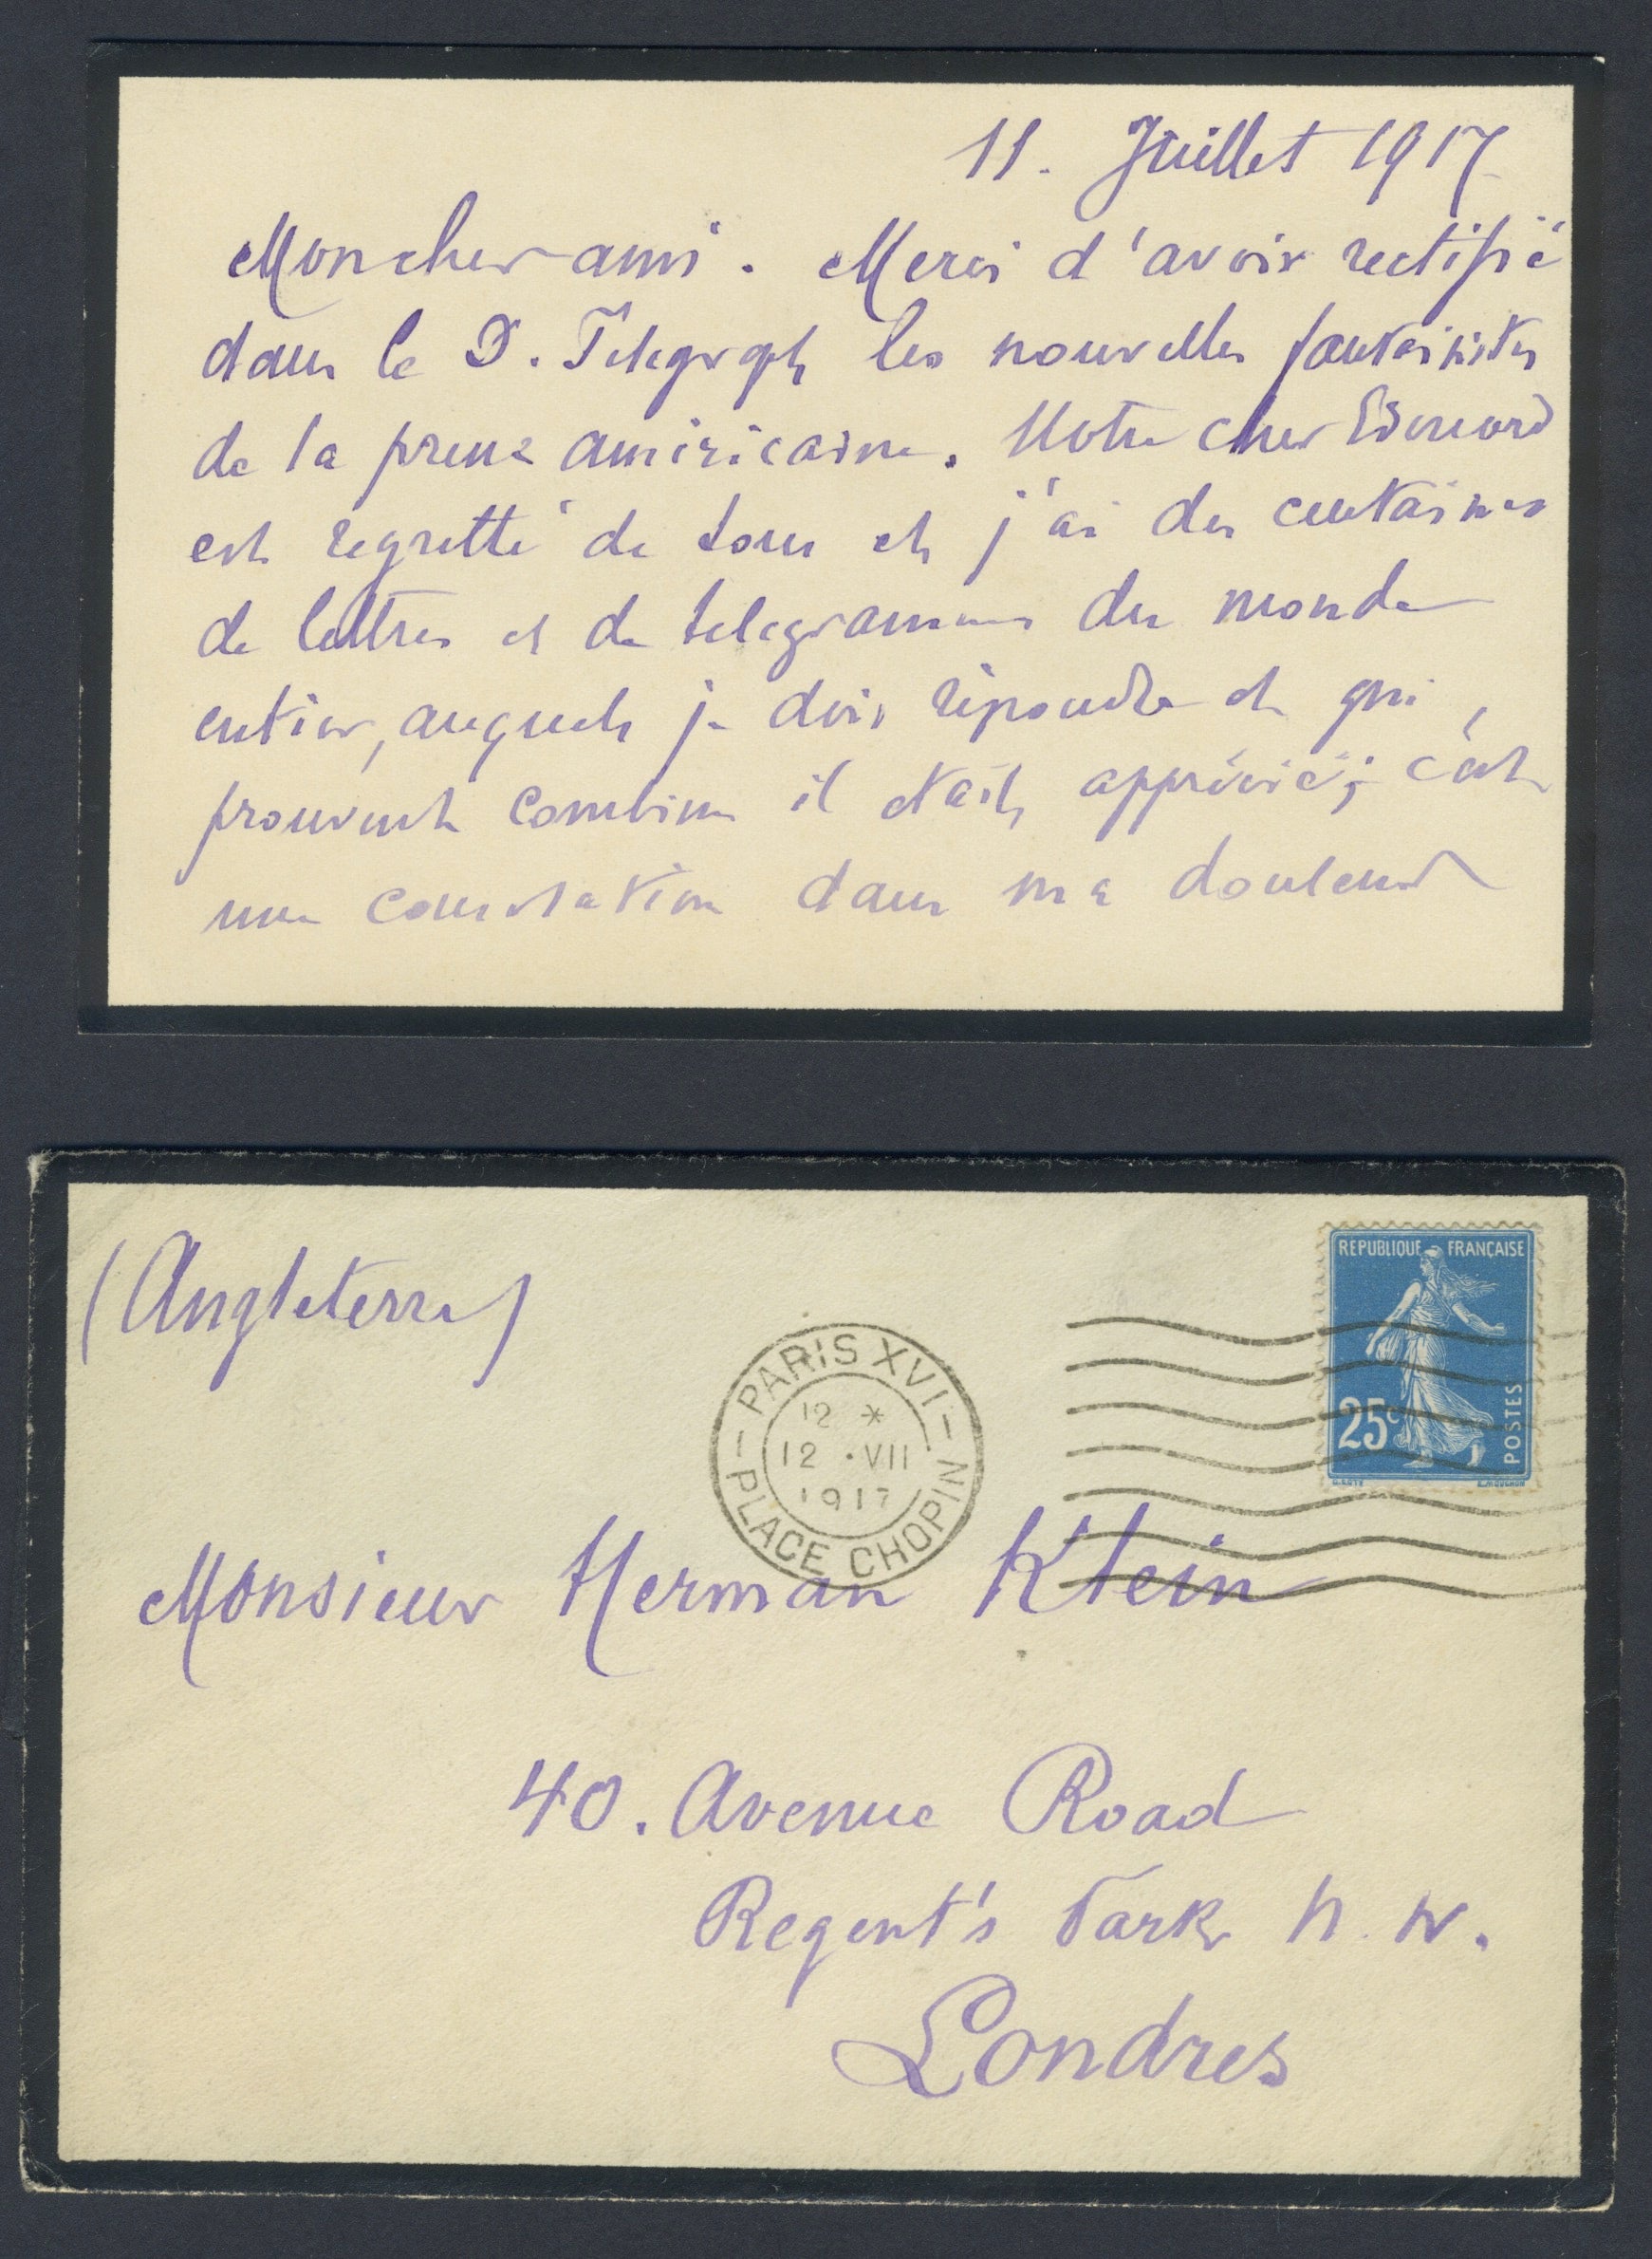 11. Juillet 1917
Mon cher ami. Merci d'avoir rectifié
dans le D. Telegraph les nouvelles fantaisistes
de la presse américaine. Notre cher Edouard
est regretté de tous et j'ai des centaines
de lettres et de telegrammes du monde
entier, auquels je dois répondre et qui
prouvent combien il etait apprécié; c'est
une consolation dans ma douleur
(Angleterre)
REPUBLIQUE FRANÇAISE
25c
POSTES
PARIS XVI
12 *
12 • VII
1917
PLACE CHOPIN
Monsieur Herman Klein
40. Avenue Road
Regent's Park N. W.
Londres